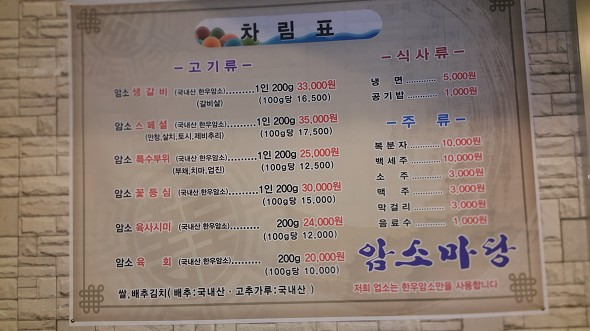 차 림 표
- 고 기 류 -
암소 생 갈 비 (국내산 한우암소)..........1인 200g 33,000원
(갈비살) (100g당 16,500)
암소 스 페 셜 (국내산 한우암소)..........1인 200g 35,000원
(안창,살치,토시,제비추리) (100g당 17,500)
암소 특수부위 (국내산 한우암소)..........1인 200g 25,000원
(부채,치마,업진) (100g당 12,500)
암소 꽃 등 심 (국내산 한우암소)..........1인 200g 30,000원
(100g당 15,000)
암소 육사시미 (국내산 한우암소)......... 200g 24,000원
(100g당 12,000)
암소 육 회 (국내산.한우암소)......... 200g 20,000원
(100g당 10,000)
쌀,배추김치( 배추:국내산 · 고추가루:국내산 )
- 식 사 류 -
냉 면 ............ 5,000원
공 기 밥 ............ 1,000원
- 주 류 -
복 분 자 ............ 10,000원
백 세 주 ............ 10,000원
소 주 ............ 3,000원
맥 주 ............ 3,000원
막 걸 리 ............ 3,000원
음 료 수 ............ 1,000원
암소마당
저희 업소는 한우암소만을 사용합니다